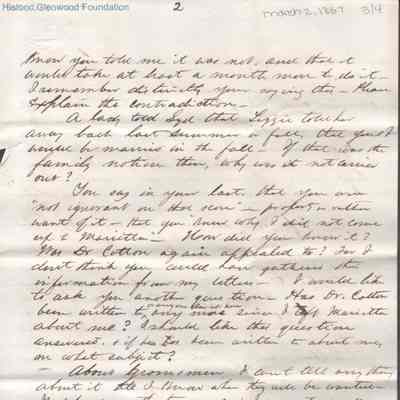 Historic Glenwood Foundation
2
March 2, 1867 3/4
Know you told me it was not, and that it
would take at least a month more to do it—
I remember distinctly your saying this— Please
Explain the contradiction—
A lady told Syd that Lizzie told her
away back last Summer or fall, that you & I
would be married in the fall— If that was the
family notion then, why was it not carried
out?
You say in your last, that you are
"not ignorant on that score"— or rather
want of it— that you knew why I did not come
up to Marietta— How did you know it?
Was Dr Cotton again appealed to? For I
don't think you could have gathered the
information from my letters— I would like
to ask you another question— Has Dr. Cotton
been written to any more since I left Marietta
about me? I should like this question
answered, & if he has been written to about me,
on what subject?
— About Groomsmen I can't tell anything
about it till I know when they will be wanted—